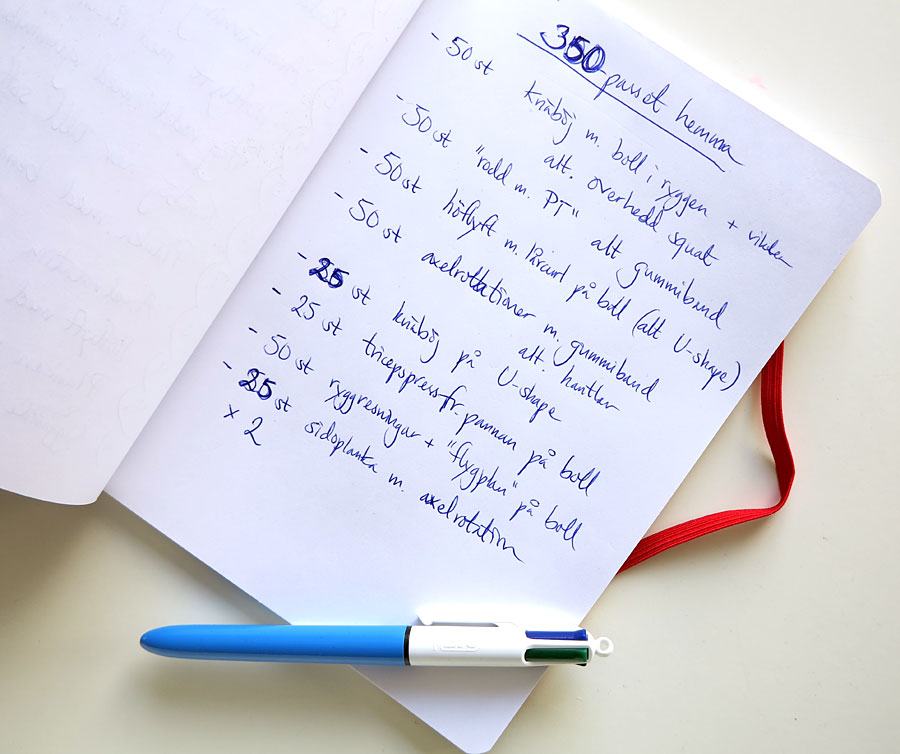 350-passet hemma
- 50 st knäböj m. boll i ryggen + vikter
alt. overhedd squat
- 50 st "rodd m. PT" alt gummiband
- 50 st höftlyft m. lårcurl på boll (alt U-shape)
- 50 st axelrotationer m. gummiband
alt. hantlar
- 25 st knäböj på U-shape
- 25 st tricepspress fr. pannan på boll
- 50 st ryggresningar + "flygplan" på boll
- 25 st sidoplanka m. axelrotation
x 2